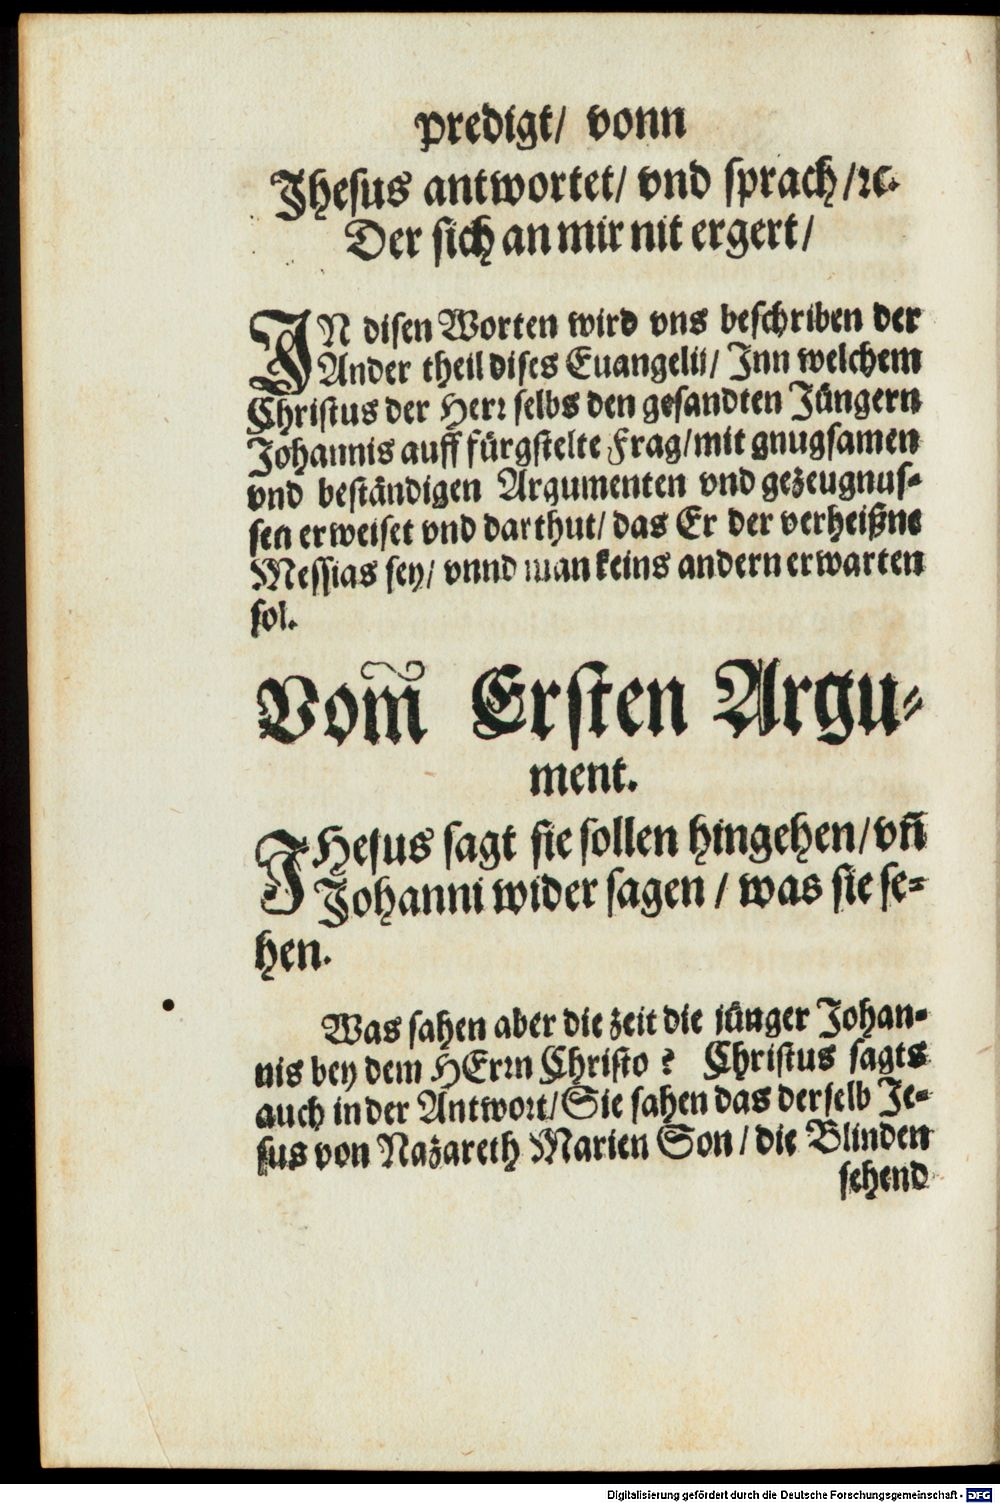 predigt/ vonn
Jhesus antwortet/ vnd sprach/ꝛc.
Der sich an mir nit ergert/
JN disen Worten wird vns beschriben der
Ander theil dises Euangelii/ Jnn welchem
Christus der Herr selbs den gesandten Jüngern
Johannis auff fürgstelte Frag/mit gnugsamen
vnd beständigen Argumenten vnd gezeugnus-
sen erweiset vnd darthut/ das Er der verheißne
Messias sey/ vnnd man keins andern erwarten
sol.
Vom̃ Ersten Argu-
ment.
JHesus sagt sie sollen hingehen/vñ
Johanni wider sagen / was sie se-
hen.
Was sahen aber die zeit die jünger Johan-
nis bey dem HErrn Christo ? Christus sagts
auch in der Antwort/Sie sahen das derselb Je-
sus von Nazareth Marien Son/die Blinden
sehend
Digitalisierung gefördert durch die Deutsche Forschungsgemeinschaft - DFG